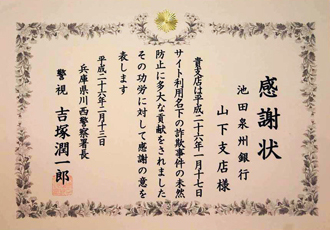 感謝状
池田泉州銀行
山下支店様
貴支店は平成二十六年一月十七日
サイト利用名下の詐欺事件の未然
防止に多大な貢献をされました
その功労に対して感謝の意を
表します
平成二十六年二月十三日
兵庫県川西警察署長
警視 吉塚潤一郎